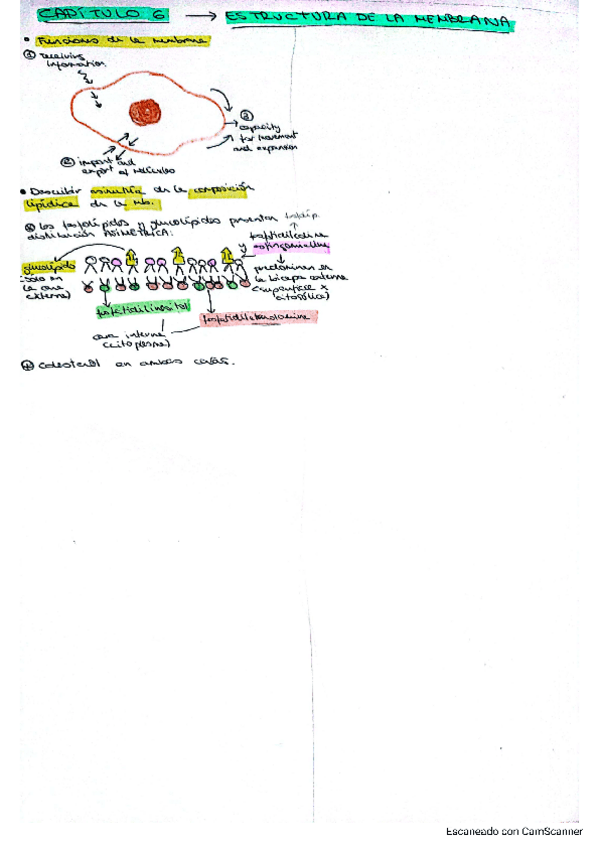 CAPÍTULO 6 → ESTRUCTURA DE LA MEMBRANA
• Funciones de la membrana
① receiving
information
③
capacity
for movement
and expansion
② import and
export of molecules
• Describir asimetría de la composición
lipídica de la mb.
⊛ Los fosfolípidos y glucolípidos presentan
distribución ASIMÉTRICA:
fosfolip.
fosfatidilcolina
y esfingomielina
glucolípido
(solo en
la cara
externa)
predominan en
la bicapa externa
(superficie x
citosólica)
fosfatidilinositol
fosfatidiletanolamina
cara interna
(citoplasma)
⊛ Colesterol en ambas caras.
Escaneado con CamScanner